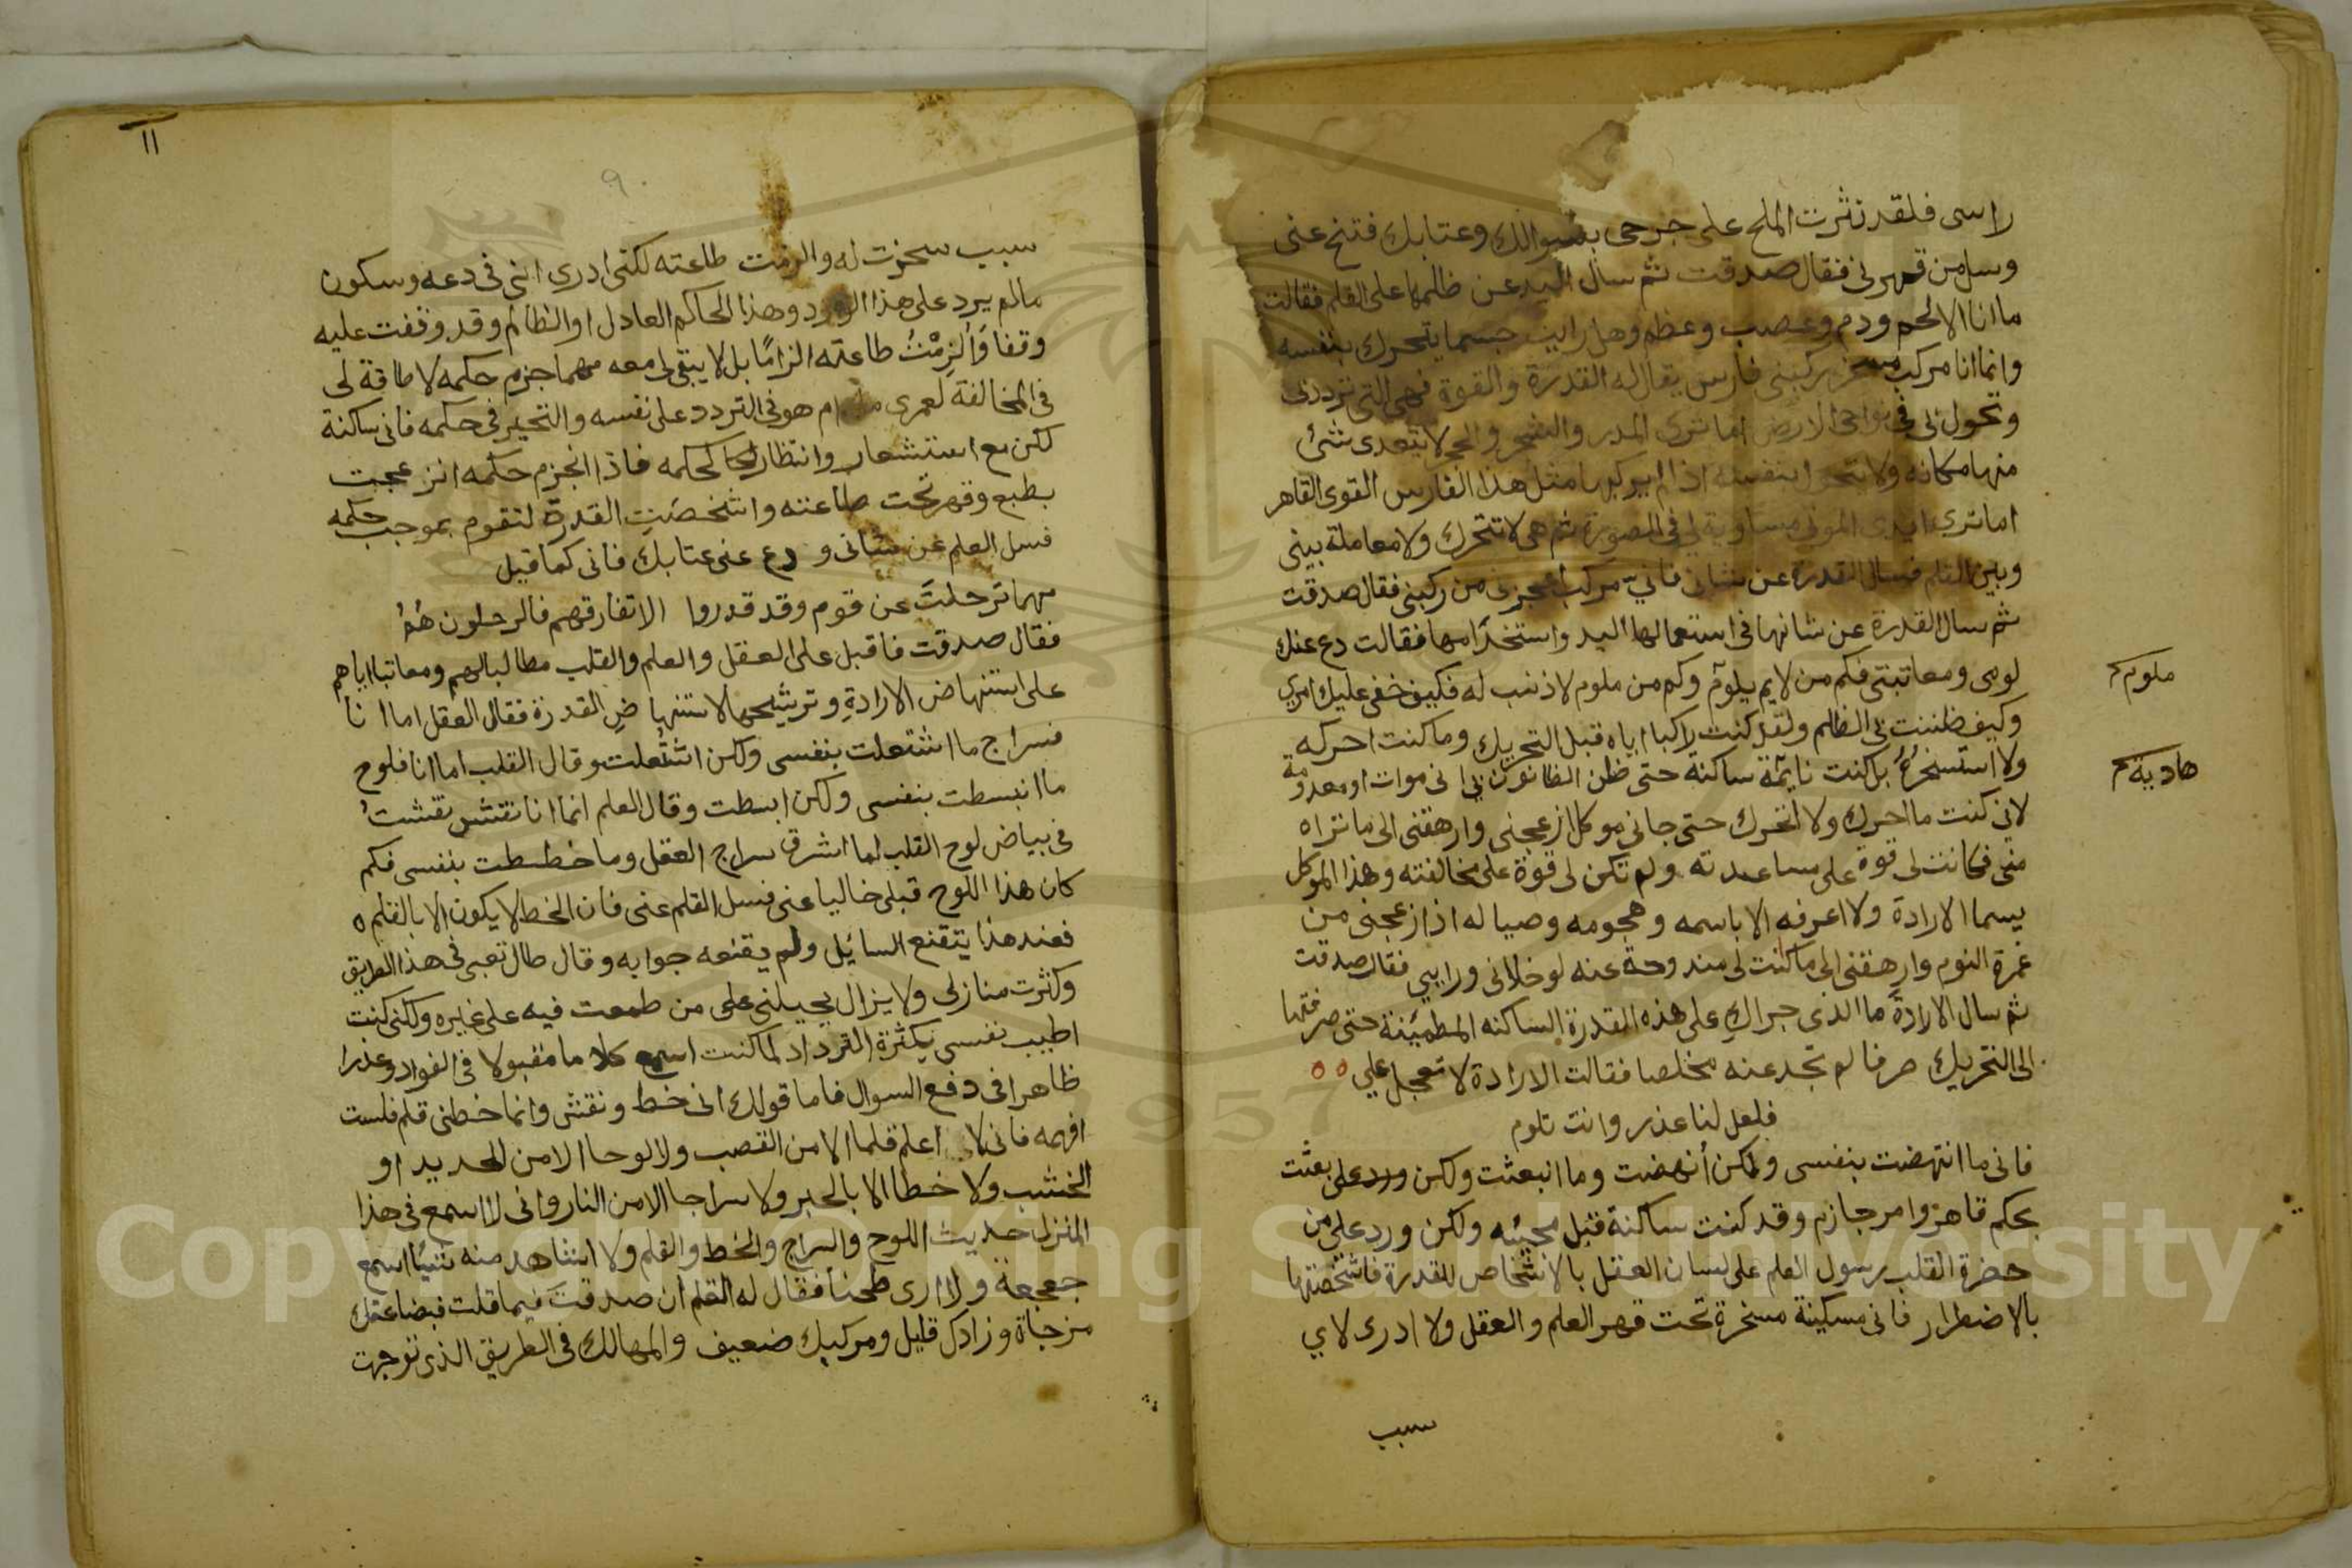 راسى فلقد نثرت الملح على جرحى بسوالك وعتابك فتنح عنى
وسل من قهرنى فقال صدقت ثم سال اليد عن ظلمها على القلم فقالت
ما انا الا لحم ودم وعصب وعظم وهل رايت جسما يتحرك بنفسه
وانما انا مركب مسخر ركبنى فارس يقال له القدرة والقوة فهى التى ترددنى
وتجول بى فى نواحى الارض اما ترى المدر والشجر والحجر لا يتعدى شئ
منها مكانه ولا يتحرك بنفسه اذا لم يركبها مثل هذا الفارس القوى القاهر
اما ترى ايدى الموتى مساوية لى فى الصورة ثم هى لا تتحرك ولا معاملة بينى
وبين القلم فسال القدرة عن شانى فانيّ مركب ازعجنى من ركبنى فقال صدقت
ثم سال القدرة عن شانها فى استعمالها اليد واستخدامها فقالت دع عنك
لومى ومعاتبتى فكم من لايم يلوم وكم من ملوم لا ذنب له فكيف خفى عليك امرى
ملوم
وكيف ظننت بى الظلم ولقد كنت راكبا اياه قبل التحريك وما كنت احركه
ولا استسخره بل كنت نايمة ساكنة حتى ظن الظانون بى انى موات او معدومة
هادية
لانى كنت ما احرك ولا اتحرك حتى جانى موكل ازعجنى وارهقنى الى ما تراه
منى فكانت لى قوة على مساعدته ولم تكن لى قوة على مخالفته وهذا الموكل
يسما الارادة ولا اعرفه الا باسمه وهجومه وصياله اذ ازعجنى من
غمرة النوم وارهقنى الى ما كنت لى مندوحة عنه لو خلانى ورايي فقال صدقت
ثم سال الارادة ما الذى جراكِ على هذه القدرة الساكنه المطمئنة حتى صرفتها
الى التحريك صرفا لم تجد عنه مخلصا فقالت الارادة لا تعجل علي ه ه
فلعل لنا عذر وانت تلوم
فانى ما انتهضت بنفسى ولكن أنهضت وما انبعثت ولكن ورد على بعثت
بحكم قاهر وامر جازم وقد كنت ساكنة قبل مجيئه ولكن ورد على من
حضرة القلب رسول العلم على لسان العقل بالاشخاص للقدرة فاشخصتها
بالاضطرار فانى مسكينة مسخرة تحت قهر العلم والعقل ولا ادرى لاي
سبب
١١
٩
سبب سخرت له والزمت طاعته لكنى ادرى اننى فى دعه وسكون
مالم يرد على هذا الوارد وهذا الحاكم العادل او الظالم وقد وقفت عليه
وقفا وَأُلزِمْتُ طاعته الزامًا بل لا يبقى لى معه مهما جزم حكمه لا طاقة لى
فى المخالفة لعمرى ما دام هو فى التردد على نفسه والتحير فى حكمه فانى ساكنة
لكن مع استشعار وانتظار لحكمه فاذا انجزم حكمه انزعجت
بطبع وقهر تحت طاعته واشخصَتِ القدرة لتقوم بموجب حكمه
فسل العلم عن شانى ودع عنى عتابك فانى كما قيل
مهما ترحلتَ عن قوم وقد قدروا الا تفارقهم فالرحلون هُمُ
فقال صدقت فاقبل على العقل والعلم والقلب مطالبا لهم ومعاتبا اياهم
على استنهاض الارادةِ وترشيحها لاستنهاضِ القدرة فقال العقل اما انا
فسراج ما اشتعلت بنفسى ولكن اشتُعلت وقال القلب اما انا فلوح
ما انبسطت بنفسى ولكن ابسطت وقال العلم انما انا نقش نقشتُ
فى بياض لوح القلب لما اشرق سراج العقل وما خططت بنفسى فكم
كان هذا اللوح قبلى خاليا عنى فسل القلم عنى فان الخط لا يكون الا بالقلم ه
فعند هذا يتقنع السايل ولم يقنعه جوابه وقال طال تعبى فى هذا الطريق
وكثرت منازلى ولا يزال يحيلنى على من طمعت فيه على غيره ولكنى كنت
اطيب نفسى بكثرة الترداد لما كنت اسمع كلاما مقبولا فى الفواد وعذرا
ظاهرا فى دفع السوال فاما قولك انى خط ونقش وانما خطنى قلم فلست
افهمه فانى لا اعلم قلما الا من القصب ولا لوحا الا من الحديد او
الخشب ولا خطا الا بالحبر ولا سراجا الا من النار وانى لا اسمع فى هذا
المنزل حديث اللوح والسراج والخط والقلم ولا اشاهد منه شيئا اسمع
جعجعة ولا ارى طحنا فقال له القلم ان صدقت فيما قلت فبضاعتك
مزجاة وزادك قليل ومركبك ضعيف والمهالك فى الطريق الذى توجهت
Copyright © King Saud University
1957